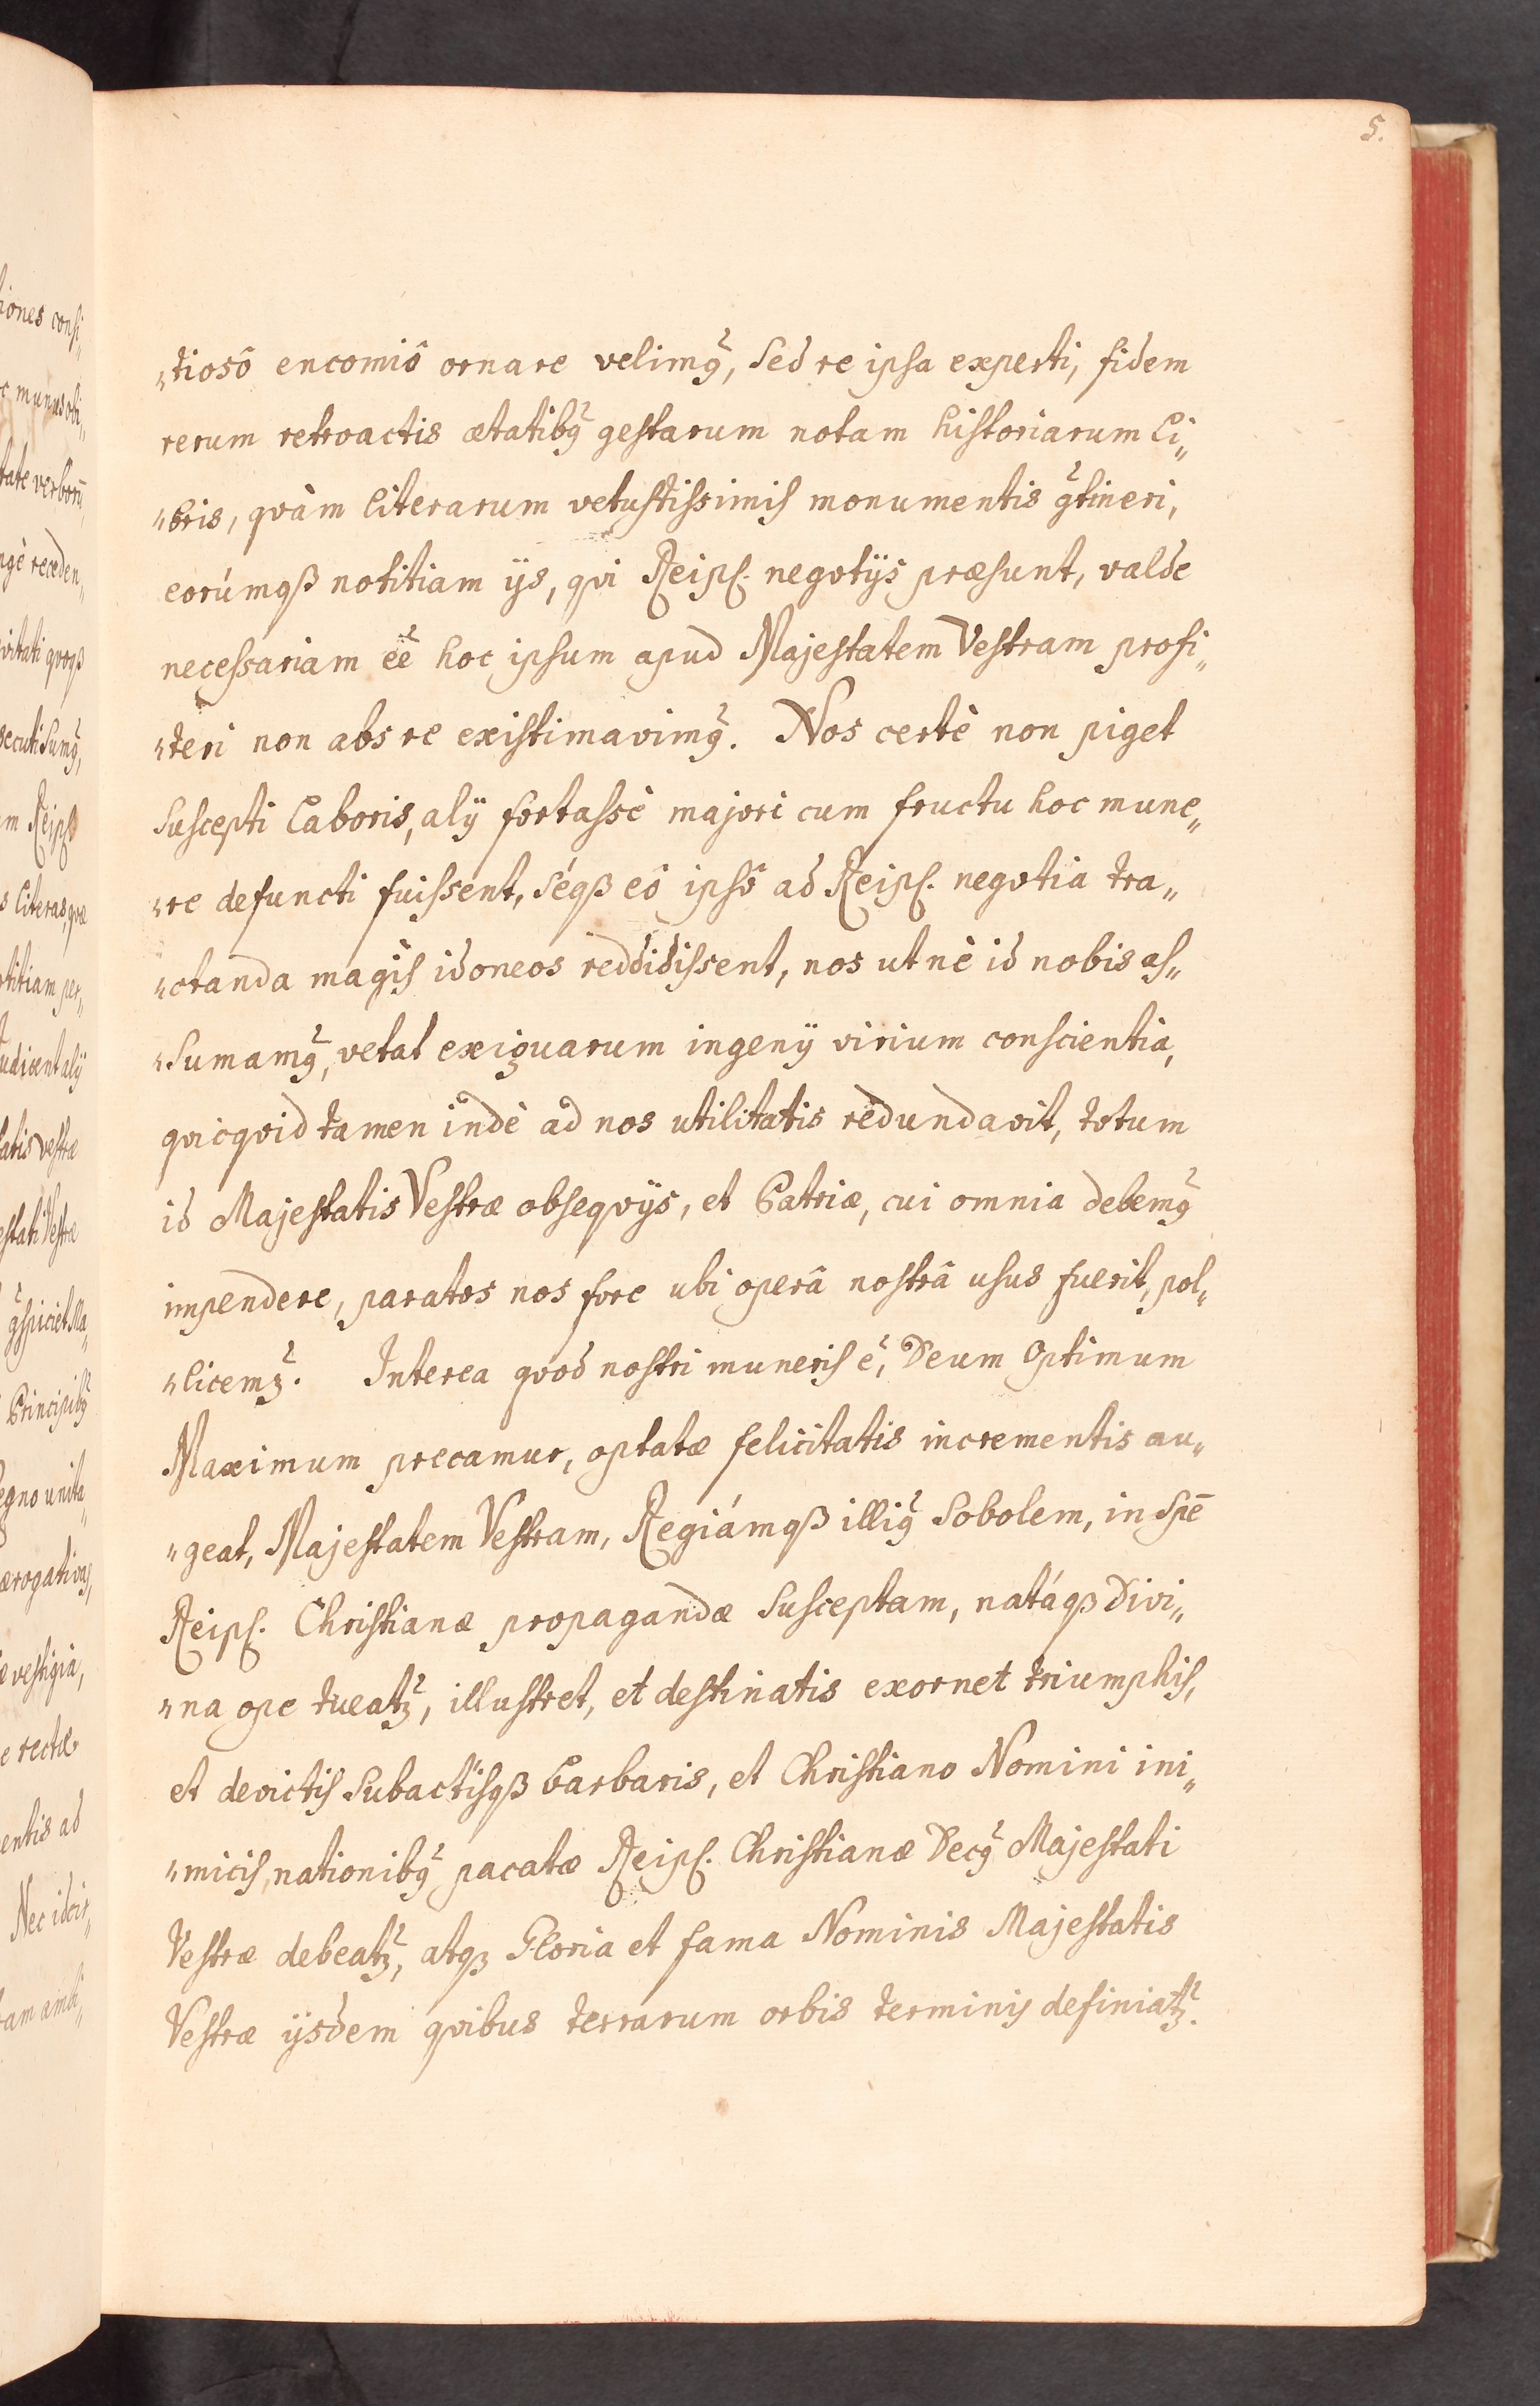 5.
„tiosô encomiô ornare velimꝰ, sed re ipsa experti, fidem
rerum retroactis ætatibꝰ gestarum notam historiarum li„
„bris, qvàm literarum vetustissimis monumentis ꝯtineri,
eorúmqꝫ notitiam ijs, qvi Reipſ. negotijs præsunt, valde
necessariam eẽ hoc ipsum apud Majestatem Vestram profi„
„teri non abs re existimavimꝰ. Nos certè non piget
suscepti laboris, alij fortassè majori cum fructu hoc mune„
„re defuncti fuissent, séqꝫ eô ipsô ad Reipſ. negotia tra„
„ctanda magis idoneos reddidissent, nos ut nè id nobis as„
„sumamꝰ, vetat exiguarum ingenij virium conscientia,
qvicqvid tamen indè ad nos utilitatis redundavit, totum
id Majestatis Vestræ obseqvijs, et Patriæ, cui omnia debemꝰ
impendere, paratos nos fore ubi operâ nostrâ usus fuerit, pol„
„licemꝫ. Interea qvod nostri muneris ẽ, Deum Optimum
Maximum precamur, optatæ felicitatis incrementis au„
„geat, Majestatem Vestram, Regiámqꝫ illiꝰ Sobolem, in spē
Reipſ. Christianæ propagandæ susceptam, natáqꝫ Divi„
„na ope tueatꝫ, illustret, et destinatis exornet triumphis,
et devictis subactisqꝫ barbaris, et Christiano Nomini ini„
„micis, nationibꝰ pacatæ Reipſ. Christianæ Decꝰ Majestati
Vestræ debeatꝫ, atqꝫ Gloria et fama Nominis Majestatis
Vestræ ijsdem qvibus terrarum orbis terminis definiatꝫ.